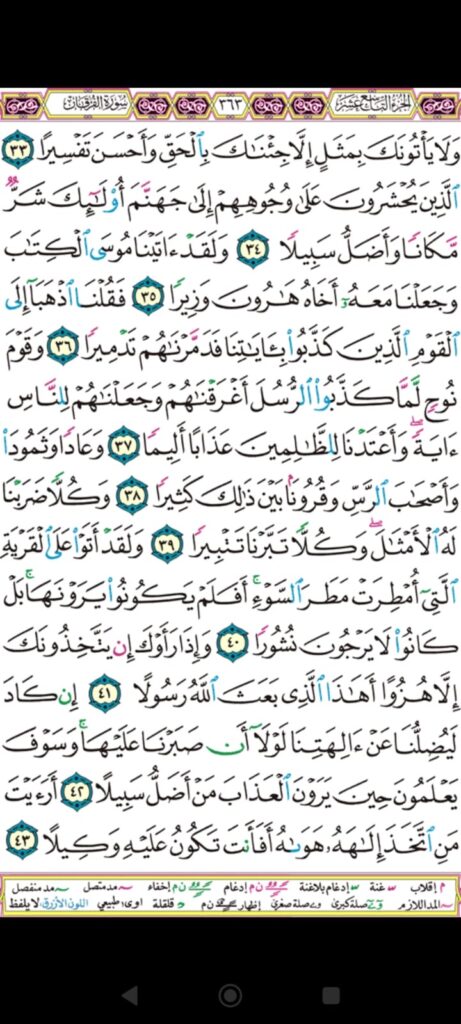 الجزء التاسع عشر ٣٦٣ سورة الفرقان
وَلَا يَأْتُونَكَ بِمَثَلٍ إِلَّا جِئْنَٰكَ بِٱلْحَقِّ وَأَحْسَنَ تَفْسِيرًا ٣٣
ٱلَّذِينَ يُحْشَرُونَ عَلَىٰ وُجُوهِهِمْ إِلَىٰ جَهَنَّمَ أُو۟لَٰٓئِكَ شَرٌّ
مَّكَانًا وَأَضَلُّ سَبِيلًا ٣٤ وَلَقَدْ ءَاتَيْنَا مُوسَى ٱلْكِتَٰبَ
وَجَعَلْنَا مَعَهُۥٓ أَخَاهُ هَٰرُونَ وَزِيرًا ٣٥ فَقُلْنَا ٱذْهَبَآ إِلَى
ٱلْقَوْمِ ٱلَّذِينَ كَذَّبُوا۟ بِـَٔايَٰتِنَا فَدَمَّرْنَٰهُمْ تَدْمِيرًا ٣٦ وَقَوْمَ
نُوحٍ لَّمَّا كَذَّبُوا۟ ٱلرُّسُلَ أَغْرَقْنَٰهُمْ وَجَعَلْنَٰهُمْ لِلنَّاسِ
ءَايَةً ۖ وَأَعْتَدْنَا لِلظَّٰلِمِينَ عَذَابًا أَلِيمًا ٣٧ وَعَادًا وَثَمُودَا۟
وَأَصْحَٰبَ ٱلرَّسِّ وَقُرُونًۢا بَيْنَ ذَٰلِكَ كَثِيرًا ٣٨ وَكُلًّا ضَرَبْنَا
لَهُ ٱلْأَمْثَٰلَ ۖ وَكُلًّا تَبَّرْنَا تَتْبِيرًا ٣٩ وَلَقَدْ أَتَوْا۟ عَلَى ٱلْقَرْيَةِ
ٱلَّتِىٓ أُمْطِرَتْ مَطَرَ ٱلسَّوْءِ ۚ أَفَلَمْ يَكُونُوا۟ يَرَوْنَهَا ۚ بَلْ
كَانُوا۟ لَا يَرْجُونَ نُشُورًا ٤٠ وَإِذَا رَأَوْكَ إِن يَتَّخِذُونَكَ
إِلَّا هُزُوًا أَهَٰذَا ٱلَّذِى بَعَثَ ٱللَّهُ رَسُولًا ٤١ إِن كَادَ
لَيُضِلُّنَا عَنْ ءَالِهَتِنَا لَوْلَآ أَن صَبَرْنَا عَلَيْهَا ۚ وَسَوْفَ
يَعْلَمُونَ حِينَ يَرَوْنَ ٱلْعَذَابَ مَنْ أَضَلُّ سَبِيلًا ٤٢ أَرَءَيْتَ
مَنِ ٱتَّخَذَ إِلَٰهَهُۥ هَوَىٰهُ أَفَأَنتَ تَكُونُ عَلَيْهِ وَكِيلًا ٤٣
م إقلاب غنة إدغام بلاغنة ن م إدغام ن م إخفاء مد متصل مد منفصل
المد اللازم صلة كبرى صلة صغرى إظهار ن م قلقلة اوى: طبيعي اللون الأزرق: لا يلفظ